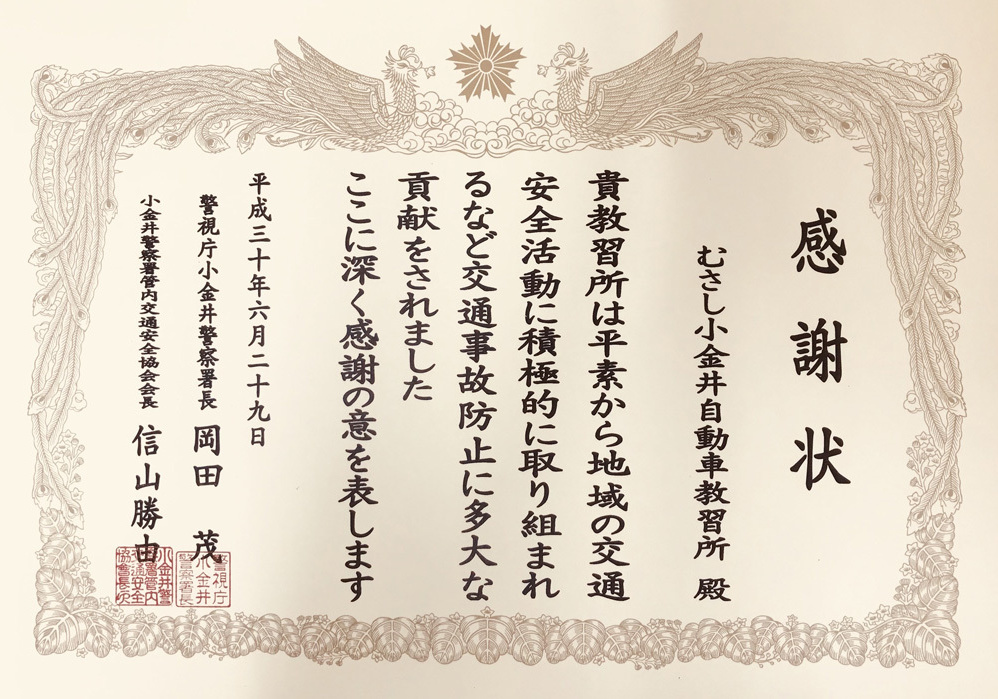 感謝状
むさし小金井自動車教習所 殿
貴教習所は平素から地域の交通
安全活動に積極的に取り組まれ
るなど交通事故防止に多大な
貢献をされました
ここに深く感謝の意を表します
平成三十年六月二十九日
警視庁小金井警察署長 岡田 茂
小金井警察署管内交通安全協会会長 信山勝由
警視庁
小金井
警察署長
小金井警
察署管内
交通安全